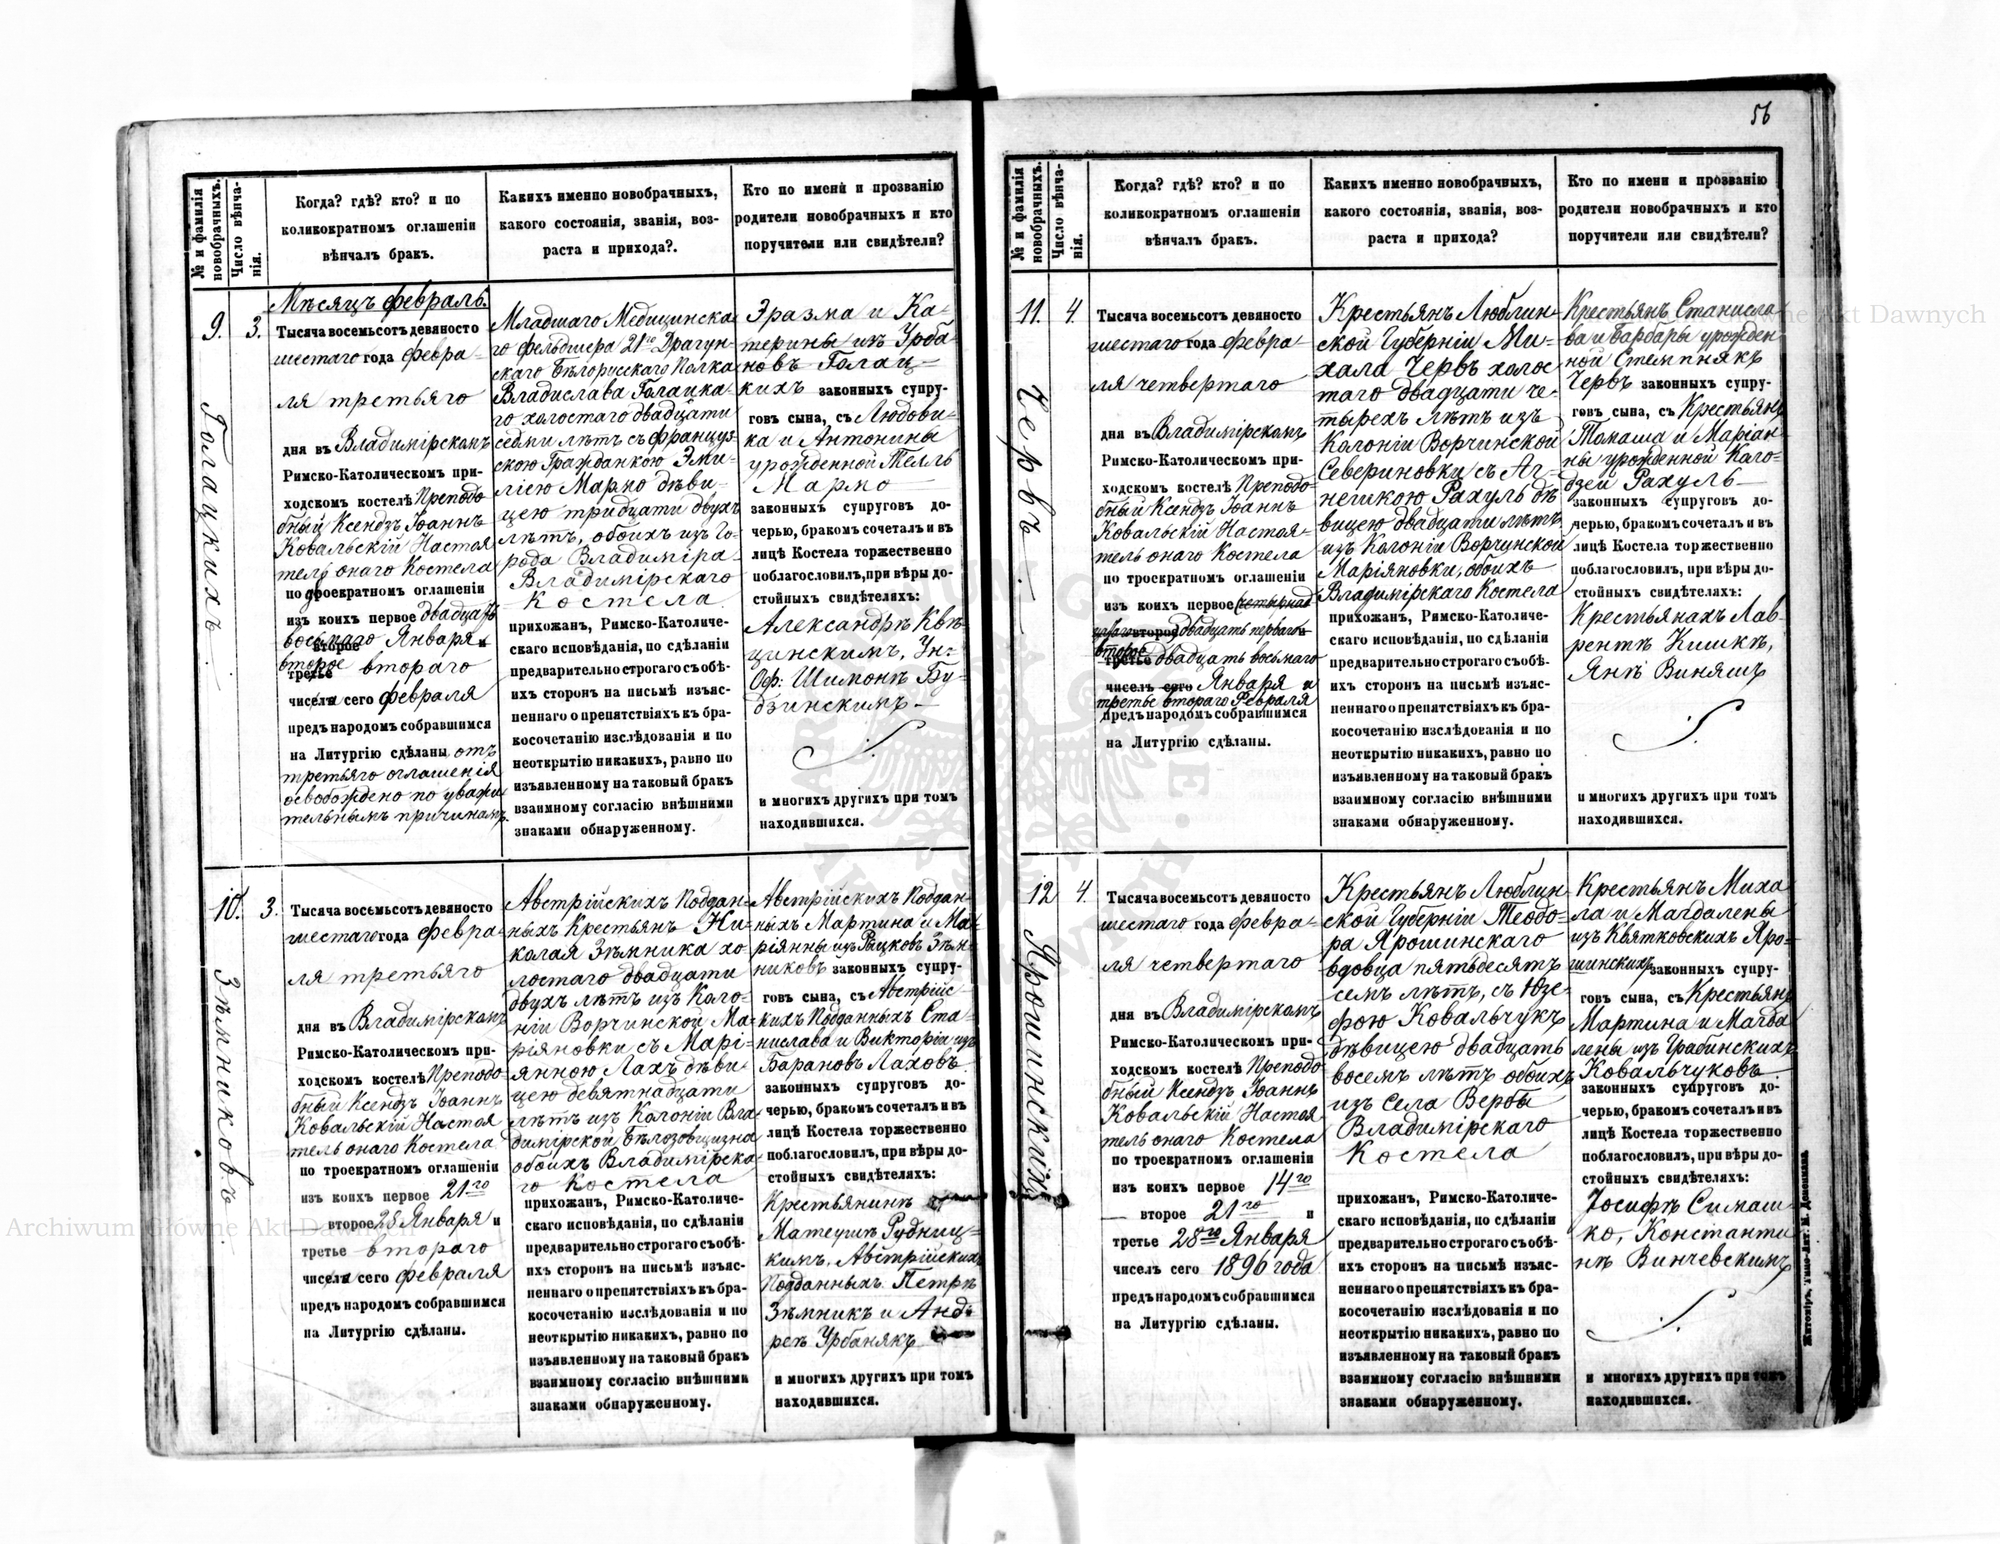 56
№ и фамилія новобрачныхъ.
Число вѣнча-
нія.
Когда? гдѣ? кто? и по
коликократномъ оглашеніи
вѣнчалъ бракъ.
Какихъ именно новобрачныхъ,
какого состоянія, званія, воз-
раста и прихода?.
Кто по имени и прозванію
родители новобрачныхъ и кто
поручители или свидѣтели?
9.
3.
Голацкихъ.
Мѣсяцъ февраль.
Тысяча восемьсотъ девяносто
шестаго года февра-
ля третьяго
дня въ Владимірскомъ
Римско-Католическомъ при-
ходскомъ костелѣ Преподо
бный Ксендзъ Іоаннъ
Ковальскій Настоя
тель онаго Костела
по двоекратномъ оглашеніи
изъ коихъ первое двадцать
восьмаго Января и
второе втораго
числа сего февраля
предъ народомъ собравшимся
на Литургію сдѣланы отъ
третьяго оглашенія
освобождено по уважи
тельнымъ причинамъ.
Младшаго Медицинска
го фельдшера 21го Драгун-
скаго Бѣлорусскаго Полка
Владислава Голацка-
го холостаго двадцати
седми лѣтъ съ француз-
скою Гражданкою Эми-
ліею Мармо дѣви-
цею тридцати двухъ
лѣтъ, обоихъ изъ Го-
рода Владиміра-
Владимірскаго
Костела
прихожанъ, Римско-Католиче-
скаго исповѣданія, по сдѣланіи
предварительно строгаго съ обѣ-
ихъ сторонъ на письмѣ изъяс-
неннаго о препятствіяхъ къ бра-
косочетанію изслѣдованія и по
неоткрытію никакихъ, равно по
изъявленному на таковый бракъ
взаимному согласію внѣшними
знаками обнаруженному.
Эразма и Ка-
терины изъ Урба-
новъ Голац-
кихъ законныхъ супру-
говъ сына, съ Людови-
ка и Антонины
урожденной Телль
Мармо
законныхъ супруговъ до-
черью, бракомъ сочеталъ и въ
лицѣ Костела торжественно
поблагословилъ, при вѣры до-
стойныхъ свидѣтеляхъ:
Александрѣ Квѣ-
цинскимъ, Ун-
Оф: Шимонѣ Бу-
дзинскимъ
и многихъ другихъ при томъ
находившихся.
10.
3.
Зѣмниковъ.
Тысяча восемьсотъ девяносто
шестаго года февра-
ля третьяго
дня въ Владимірскомъ
Римско-Католическомъ при-
ходскомъ костелѣ Преподо
бный Ксендзъ Іоаннъ
Ковальскій Настоя
тель онаго Костела
по троекратномъ оглашеніи
изъ коихъ первое 21го
второе 28 Января и
третье втораго
числа сего февраля
предъ народомъ собравшимся
на Литургію сдѣланы.
Австрійскихъ Поддан-
ныхъ Крестьянъ Ни-
колая Зѣмника хо-
лостаго двадцати
двухъ лѣтъ изъ Коло-
ніи Ворчинской Ма-
ріяновки съ Марі-
янною Лахъ дѣви-
цею девятнадцати
лѣтъ изъ Колоніи Вла-
димірской Бѣлозовщизна
обоихъ Владимірска-
го Костела
прихожанъ, Римско-Католиче-
скаго исповѣданія, по сдѣланіи
предварительно строгаго съ обѣ-
ихъ сторонъ на письмѣ изъяс-
неннаго о препятствіяхъ къ бра-
косочетанію изслѣдованія и по
неоткрытію никакихъ, равно по
изъявленному на таковый бракъ
взаимному согласію внѣшними
знаками обнаруженному.
Австрійскихъ Поддан-
ныхъ Мартина и Ма-
ріянны изъ Рыцковъ Зѣм
никовъ законныхъ супру-
говъ сына, съ Австрійс-
кихъ Подданныхъ Ста-
нислава и Викторіи изъ
Барановъ Лаховъ
законныхъ супруговъ до-
черью, бракомъ сочеталъ и въ
лицѣ Костела торжественно
поблагословилъ, при вѣры до-
стойныхъ свидѣтеляхъ:
Крестьянинѣ
Матеушѣ Рудниц-
кимъ, Австрійскихъ
Подданныхъ Петрѣ
Зѣмникъ и Анд-
реѣ Урбанякъ
и многихъ другихъ при томъ
находившихся.
№ и фамилія новобрачныхъ.
Число вѣнча-
нія.
Когда? гдѣ? кто? и по
коликократномъ оглашеніи
вѣнчалъ бракъ.
Какихъ именно новобрачныхъ,
какого состоянія, званія, воз-
раста и прихода?
Кто по имени и прозванію
родители новобрачныхъ и кто
поручители или свидѣтели?
11.
4.
Червъ.
Тысяча восемьсотъ девяносто
шестаго года февра-
ля четвертаго
дня въ Владимірскомъ
Римско-Католическомъ при-
ходскомъ костелѣ Преподо-
бный Ксендзъ Іоаннъ
Ковальскій Настоя-
тель онаго Костела
по троекратномъ оглашеніи
изъ коихъ первое
двадцать перваго
второе двадцать восьмаго
чиселъ сего Января и
третье втораго Февраля
предъ народомъ собравшимся
на Литургію сдѣланы.
Крестьянъ Люблин-
ской Губерніи Ми-
хала Червъ холос
таго двадцати че-
тырехъ лѣтъ изъ
Колоніи Ворчинской
Севериновки съ Аг-
нешкою Рахуль дѣ
вицею двадцати лѣтъ
изъ Колоніи Ворчинской
Маріяновки, обоихъ
Владимірскаго Костела
прихожанъ, Римско-Католиче-
скаго исповѣданія, по сдѣланіи
предварительно строгаго съ обѣ-
ихъ сторонъ на письмѣ изъяс-
неннаго о препятствіяхъ къ бра-
косочетанію изслѣдованія и по
неоткрытію никакихъ, равно по
изъявленному на таковый бракъ
взаимному согласію внѣшними
знаками обнаруженному.
Крестьянъ Станисла
ва и Барбары урожден
ной Стемпнякъ
Червъ законныхъ супру-
говъ сына, съ Крестьянъ
Томаша и Маріан-
ны урожденной Коло-
дзей Рахуль
законныхъ супруговъ до-
черью, бракомъ сочеталъ и въ
лицѣ Костела торжественно
поблагословилъ, при вѣры до-
стойныхъ свидѣтеляхъ:
Крестьянахъ Лав-
рентѣ Кишкѣ,
Янѣ Виняшъ
и многихъ другихъ при томъ
находившихся.
12
4.
Ярошинскихъ
Тысяча восемьсотъ девяносто
шестаго года февра-
ля четвертаго
дня въ Владимірскомъ
Римско-Католическомъ при-
ходскомъ костелѣ Преподо
бный Ксендзъ Іоаннъ
Ковальскій Настоя
тель онаго Костела
по троекратномъ оглашеніи
изъ коихъ первое 14го
второе 21го и
третье 28го Января
чиселъ сего 1896 года
предъ народомъ собравшимся
на Литургію сдѣланы.
Крестьянъ Люблин
ской Губерніи Теодо-
ра Ярошинскаго
вдовца пятьдесятъ
семъ лѣтъ, съ Юзе-
фою Ковальчукъ
дѣвицею двадцать
восемъ лѣтъ обоихъ
изъ Села Вербы
Владимірскаго
Костела
прихожанъ, Римско-Католиче-
скаго исповѣданія, по сдѣланіи
предварительно строгаго съ обѣ-
ихъ сторонъ на письмѣ изъяс-
неннаго о препятствіяхъ къ бра-
косочетанію изслѣдованія и по
неоткрытію никакихъ, равно по
изъявленному на таковый бракъ
взаимному согласію внѣшними
знаками обнаруженному.
Крестьянъ Миха
ла и Магдалены
изъ Квятковскихъ Яро-
шинскихъ законныхъ супру-
говъ сына, съ Крестьянъ
Мартина и Магда
лены изъ Грабинскихъ
Ковальчуковъ
законныхъ супруговъ до-
черью, бракомъ сочеталъ и въ
лицѣ Костела торжественно
поблагословилъ, при вѣры до-
стойныхъ свидѣтеляхъ:
Іосифѣ Симаш-
ко, Константи
нѣ Винчевскимъ
и многихъ другихъ при томъ
находившихся.
Житоміръ, Типо-Лит. М. Дененмана.
Archiwum Główne Akt Dawnych
Główne Akt Dawnych
ARCHIWUM GŁÓWNE AKT DAWNYCH